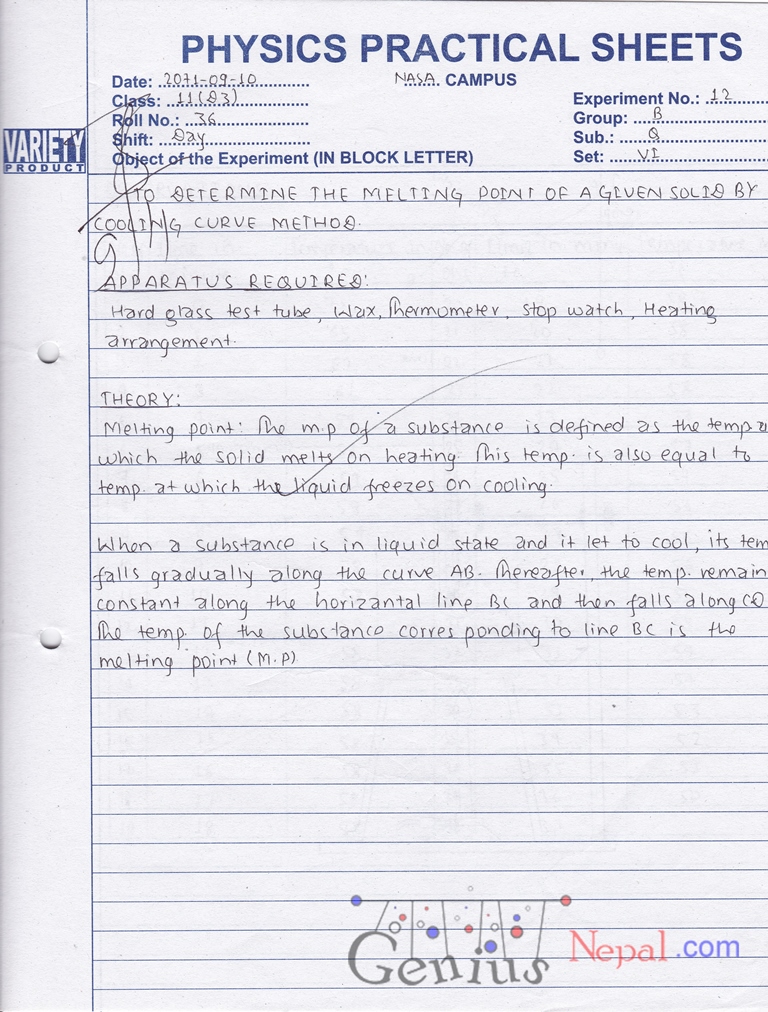 PHYSICS PRACTICAL SHEETS
Date: 2071-09-10
NASA CAMPUS
Class: 11(D3)
Experiment No.: 12
Roll No.: 36
Group: B
Shift: Day
Sub.: Q
VARIETY
PRODUCT
Object of the Experiment (IN BLOCK LETTER)
Set: VI
TO DETERMINE THE MELTING POINT OF A GIVEN SOLID BY
COOLING CURVE METHOD.
APPARATUS REQUIRED:
Hard glass test tube, Wax, Thermometer, stop watch, Heating
arrangement.
THEORY:
Melting point: The m.p of a substance is defined as the temp a
which the solid melts on heating. This temp. is also equal to
temp. at which the liquid freezes on cooling.
When a substance is in liquid state and it let to cool, its tem
falls gradually along the curve AB. Thereafter, the temp. remain
constant along the horizantal line BC and then falls along CD
The temp. of the substance corres ponding to line BC is the
melting point (M.P)
Genius Nepal.com